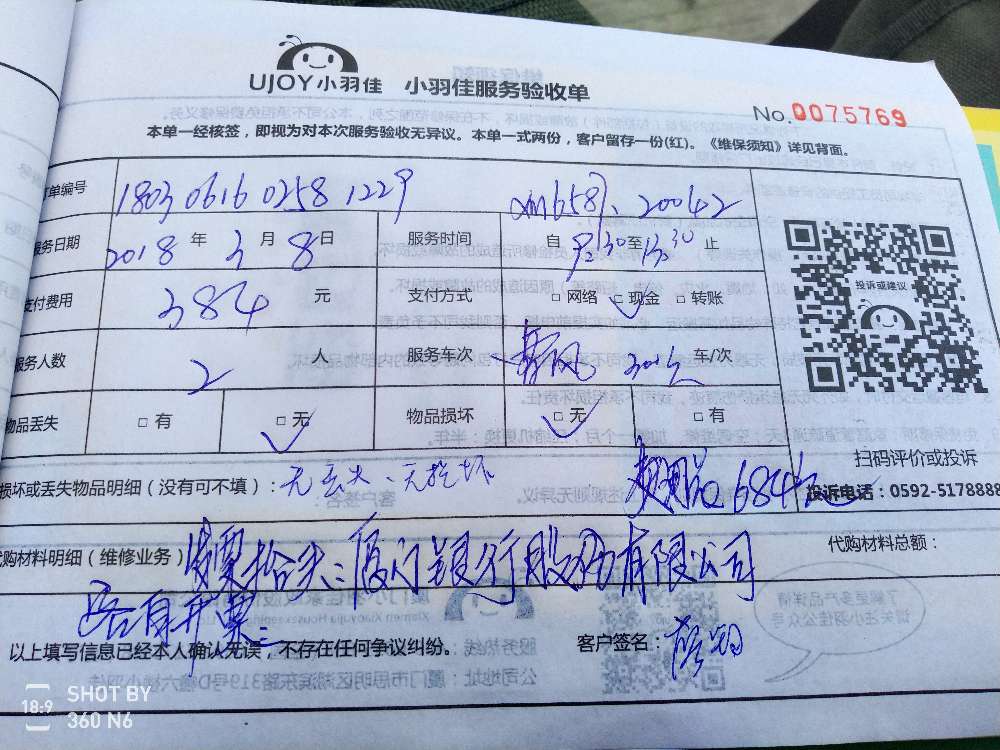 UJOY小羽佳 小羽佳服务验收单
No.0075769
本单一经核签，即视为对本次服务验收无异议。本单一式两份，客户留存一份(红)。《维保须知》详见背面。
单编号 1803 0616 0258 1229 20042
服务日期 2018 年 3 月 8 日 服务时间 自 至 13:30 止
支付费用 384 元 支付方式 □ 网络 □ 现金 □ 转账
服务人数 2 人 服务车次 300元 车/次
物品丢失 □ 有 □ 无 物品损坏 □ 无 □ 有
投诉或建议
扫码评价或投诉
损坏或丢失物品明细（没有可不填）：无丢失、无损坏 684元
投诉电话：0592-5178888
代购材料明细（维修业务） 发票抬头：厦门银行股份有限公司
代购材料总额：
是否有开票：
以上填写信息已经本人确认无误，不存在任何争议纠纷。 客户签名：
SHOT BY
18:9 360 N6